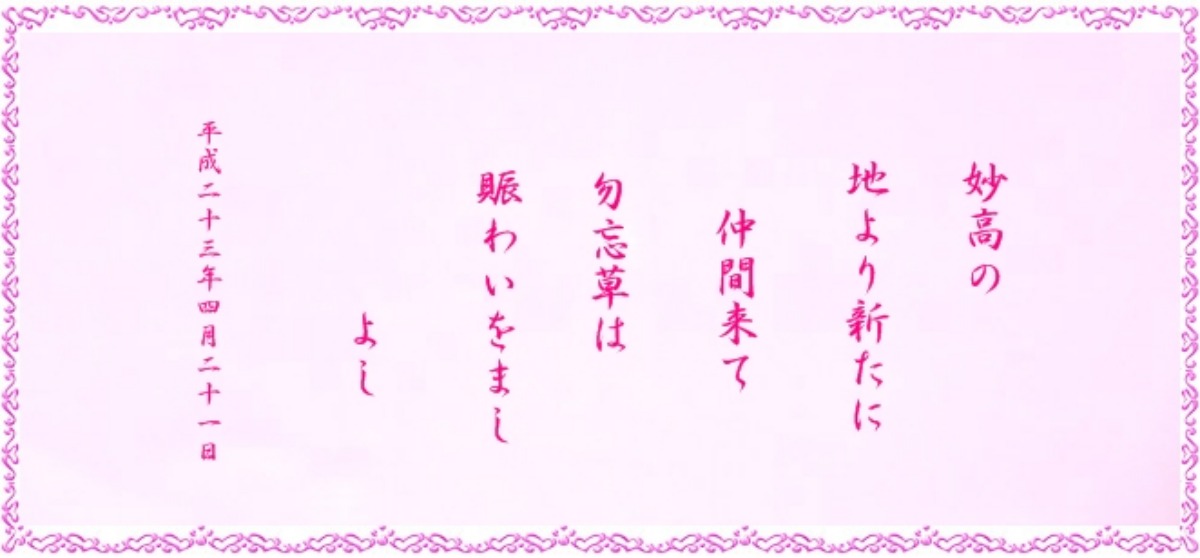 妙高の
地より新たに
仲間来て
勿忘草は
賑わいをまし
よし
平成二十三年四月二十一日